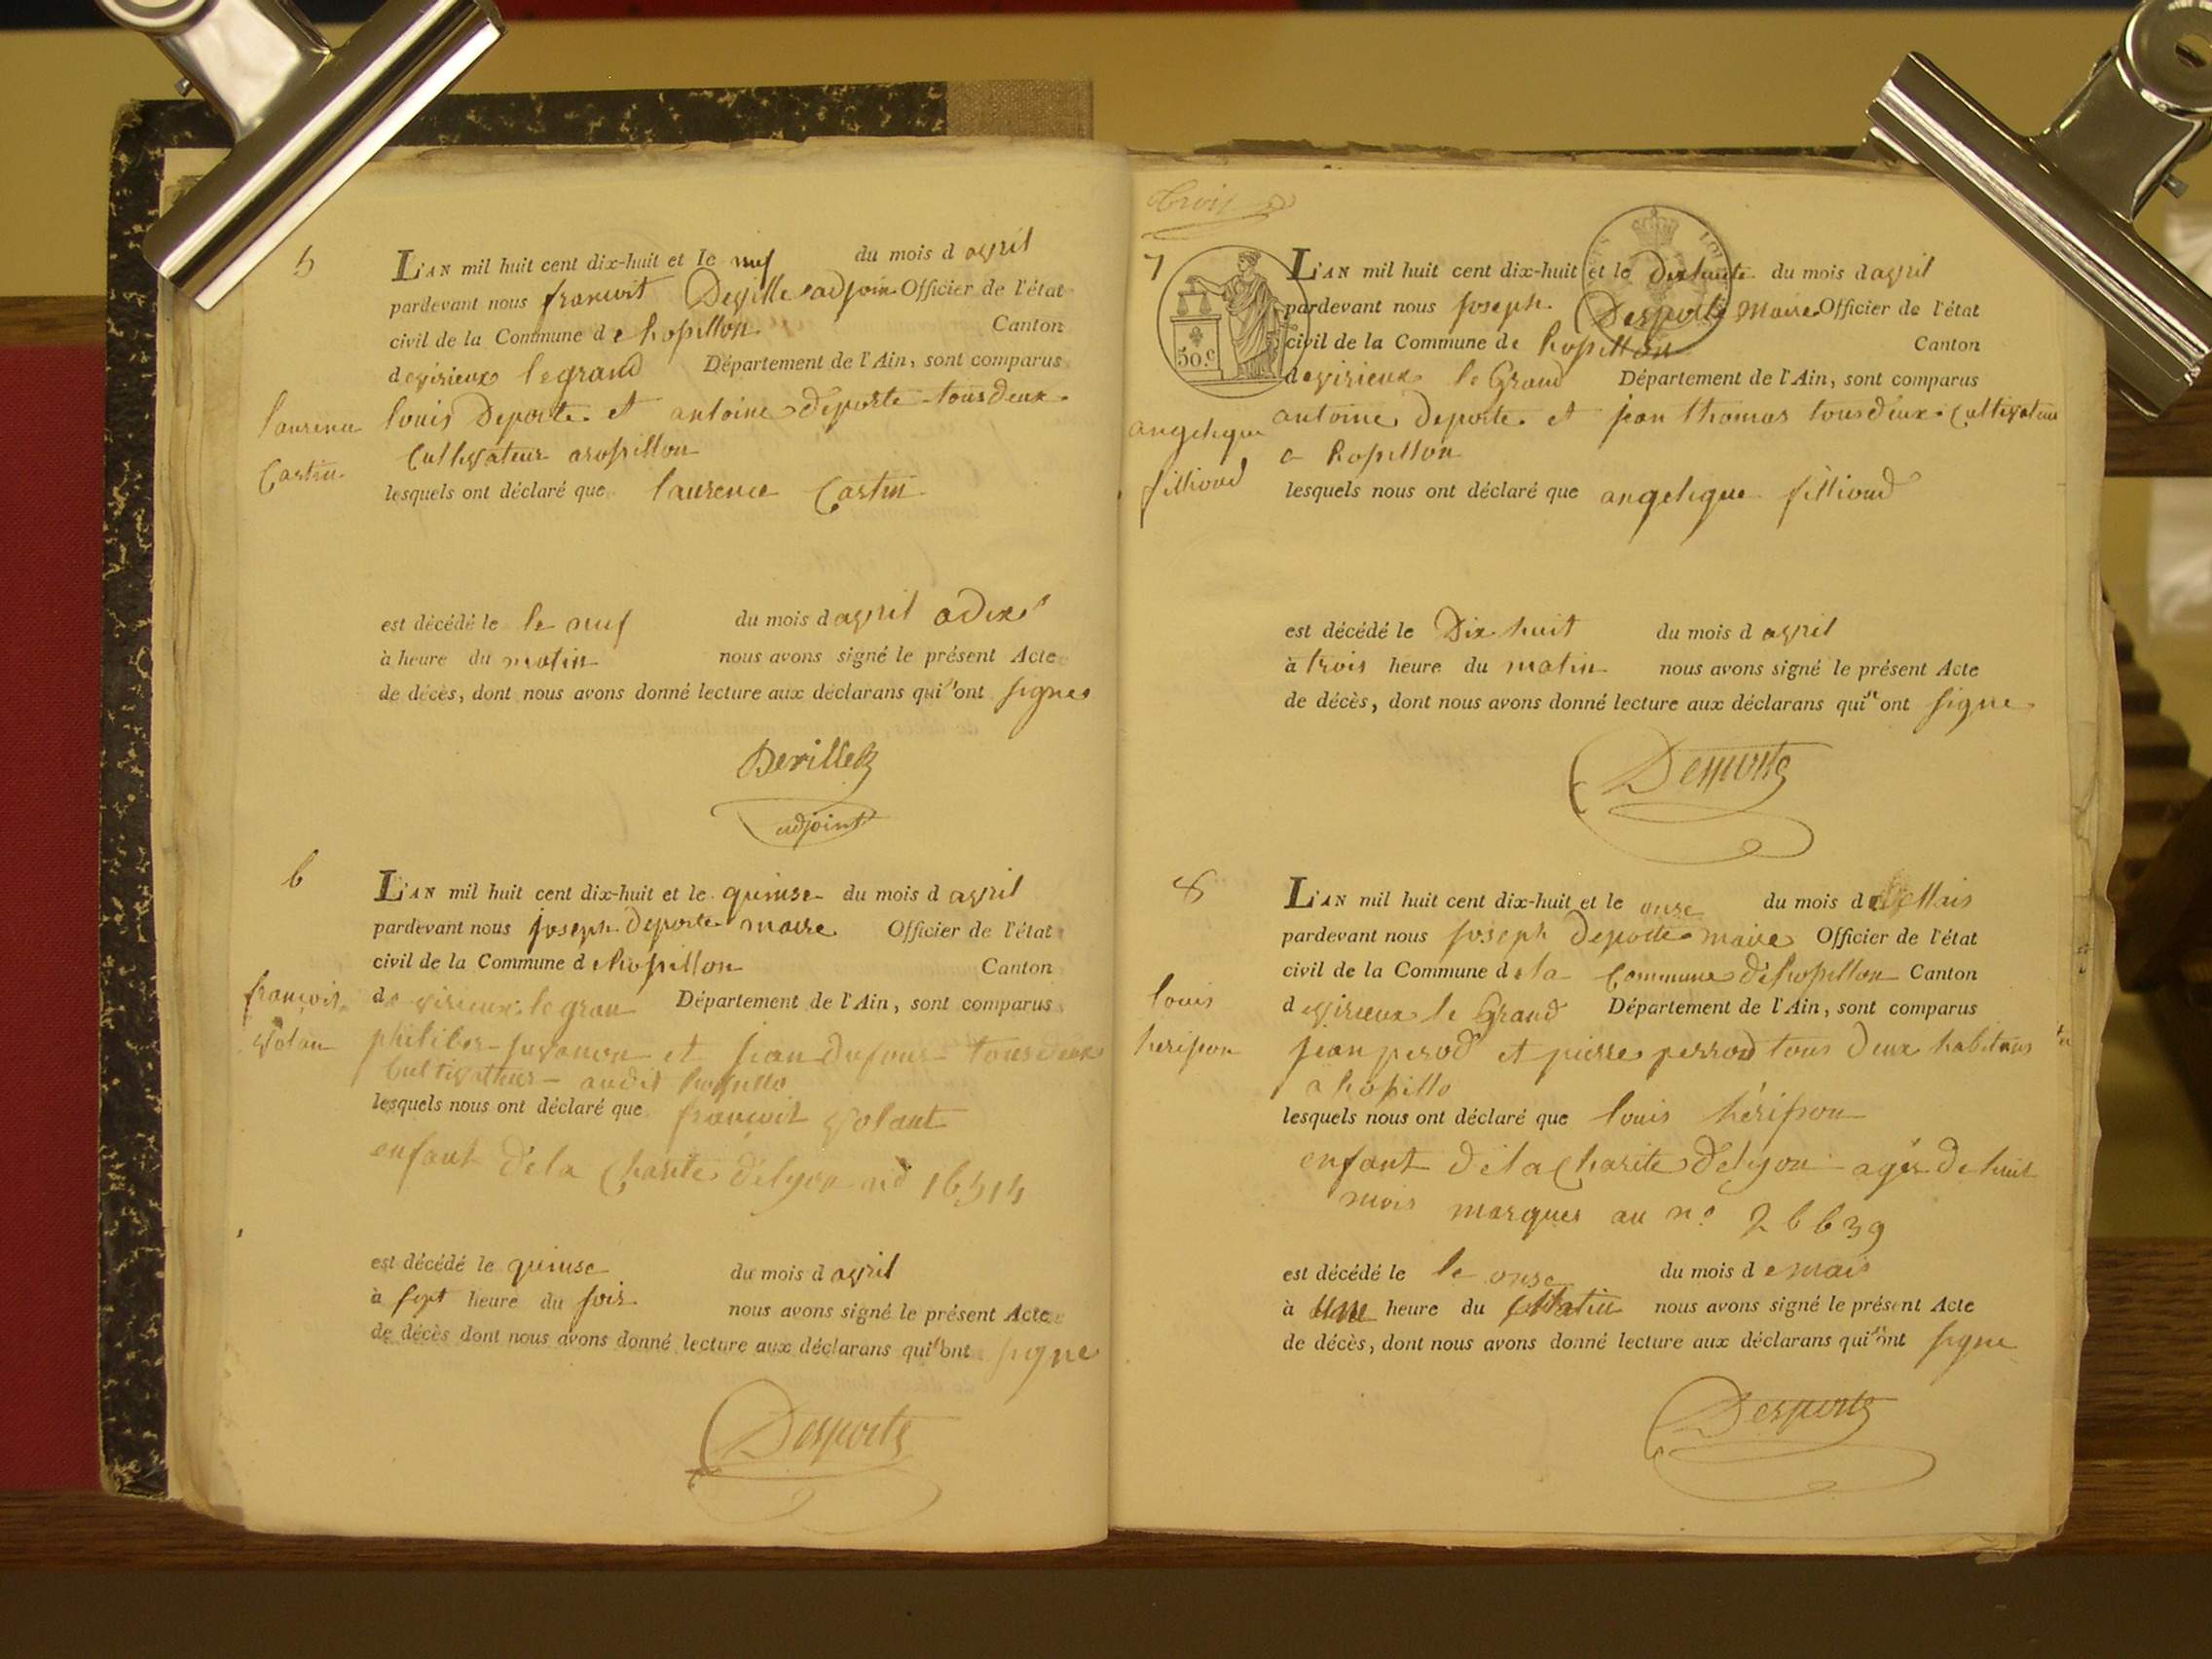 5
L'AN mil huit cent dix-huit et le neuf du mois d avril
pardevant nous françois Deville adjoin Officier de l'état
civil de la Commune de hopillon Canton
de virieux le grand Département de l'Ain, sont comparus
louis Deporte et antoine deporte tous deux
Cultivateur a ropillon
laurence
Castin
lesquels ont déclaré que laurence Castin
est décédé le le neuf du mois d avril a dix
à heure du matin nous avons signé le présent Acte
de décès, dont nous avons donné lecture aux déclarans qui n'ont signes
Deville
adjoint
6
L'AN mil huit cent dix-huit et le quinse du mois d avril
pardevant nous joseph deporte maire Officier de l'état
civil de la Commune de hopillon Canton
de virieux le gran Département de l'Ain, sont comparus
françois
volan
philiber et jean dufour tous deux
Cultivateur audit
lesquels nous ont déclaré que françois volant
enfant de la Charité de lyon no 16515
est décédé le quinse du mois d avril
à sept heure du soir nous avons signé le présent Acte
de décès dont nous avons donné lecture aux déclarans qui n'ont signe
Desporte
trois
7
50.c
L'AN mil huit cent dix-huit et le dixhuite du mois d avril
pardevant nous joseph Desporte Maire Officier de l'état
civil de la Commune de hopillon Canton
de virieux le Grand Département de l'Ain, sont comparus
antoine deporte et jean thomas tous deux Cultivateur
a Ropillon
angelique
filliond
lesquels nous ont déclaré que angelique filliond
est décédé le Dix huit du mois d avril
à trois heure du matin nous avons signé le présent Acte
de décès, dont nous avons donné lecture aux déclarans qui n'ont signe
Desporte
8
L'AN mil huit cent dix-huit et le onse du mois de Mais
pardevant nous joseph deporte maire Officier de l'état
civil de la Commune de la Commune de hopillon Canton
de virieux le Grand Département de l'Ain, sont comparus
louis
herisson
jean perod et pierre perrod tous deux habitans
a hopillo
lesquels nous ont déclaré que louis hérisson
enfant de la Charité de lyon agés de huit
mois marques au n.o 26639
est décédé le le onse du mois de mais
à Une heure du Matin nous avons signé le présent Acte
de décès, dont nous avons donné lecture aux déclarans qui n'ont signe
Desporte